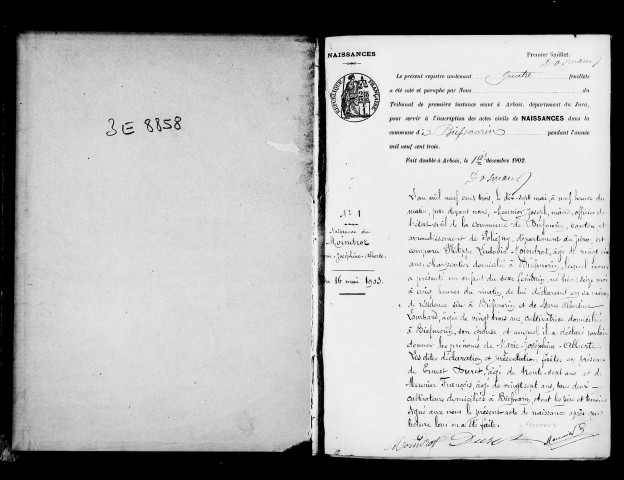 3E 8858
NAISSANCES
Premier feuillet.
RÉPUBLIQUE FRANÇAISE
Le présent registre contenant quatre feuillets
a été coté et paraphé par Nous du
Tribunal de première instance séant à Arbois, département du Jura,
pour servir à l'inscription des actes civils de NAISSANCES dans la
commune de Biefmorin pendant l'année
mil neuf cent trois.
Fait double à Arbois, le 1er décembre 1902.
N° 1
Naissance de
Moindrot
Marie-Joséphine-Alberte.
du 16 mai 1903.
L'an mil neuf cent trois, le dix-sept mai à neuf heures du
matin, par devant nous, Meunier Joseph, maire, officier de
l'état civil de la commune de Biefmorin, canton et
arrondissement de Poligny, département du Jura, est
comparu Philippe Ludovic Moindrot, âgé de vingt
ans, charpentier domicilié à Biefmorin, lequel nous
a présenté un enfant du sexe féminin, né hier seize mai
à cinq heures du matin, de lui déclarant en sa
résidence sise à Biefmorin et de Marie Albertine
Lombard, âgée de vingt trois ans, cultivatrice domiciliée
à Biefmorin, son épouse et auquel il a déclaré vouloir
donner les prénoms de Marie-Joséphine-Alberte
Les dites déclaration et présentation faites en présence
de Ernest Duret, âgé de trente-sept ans et de
Meunier François, âgé de vingt sept ans, tous deux
cultivateurs domiciliés à Biefmorin, dont les père et témoins
signé avec nous le présent acte de naissance après que
lecture leur en a été faite.
Moindrot Duret Meunier F.